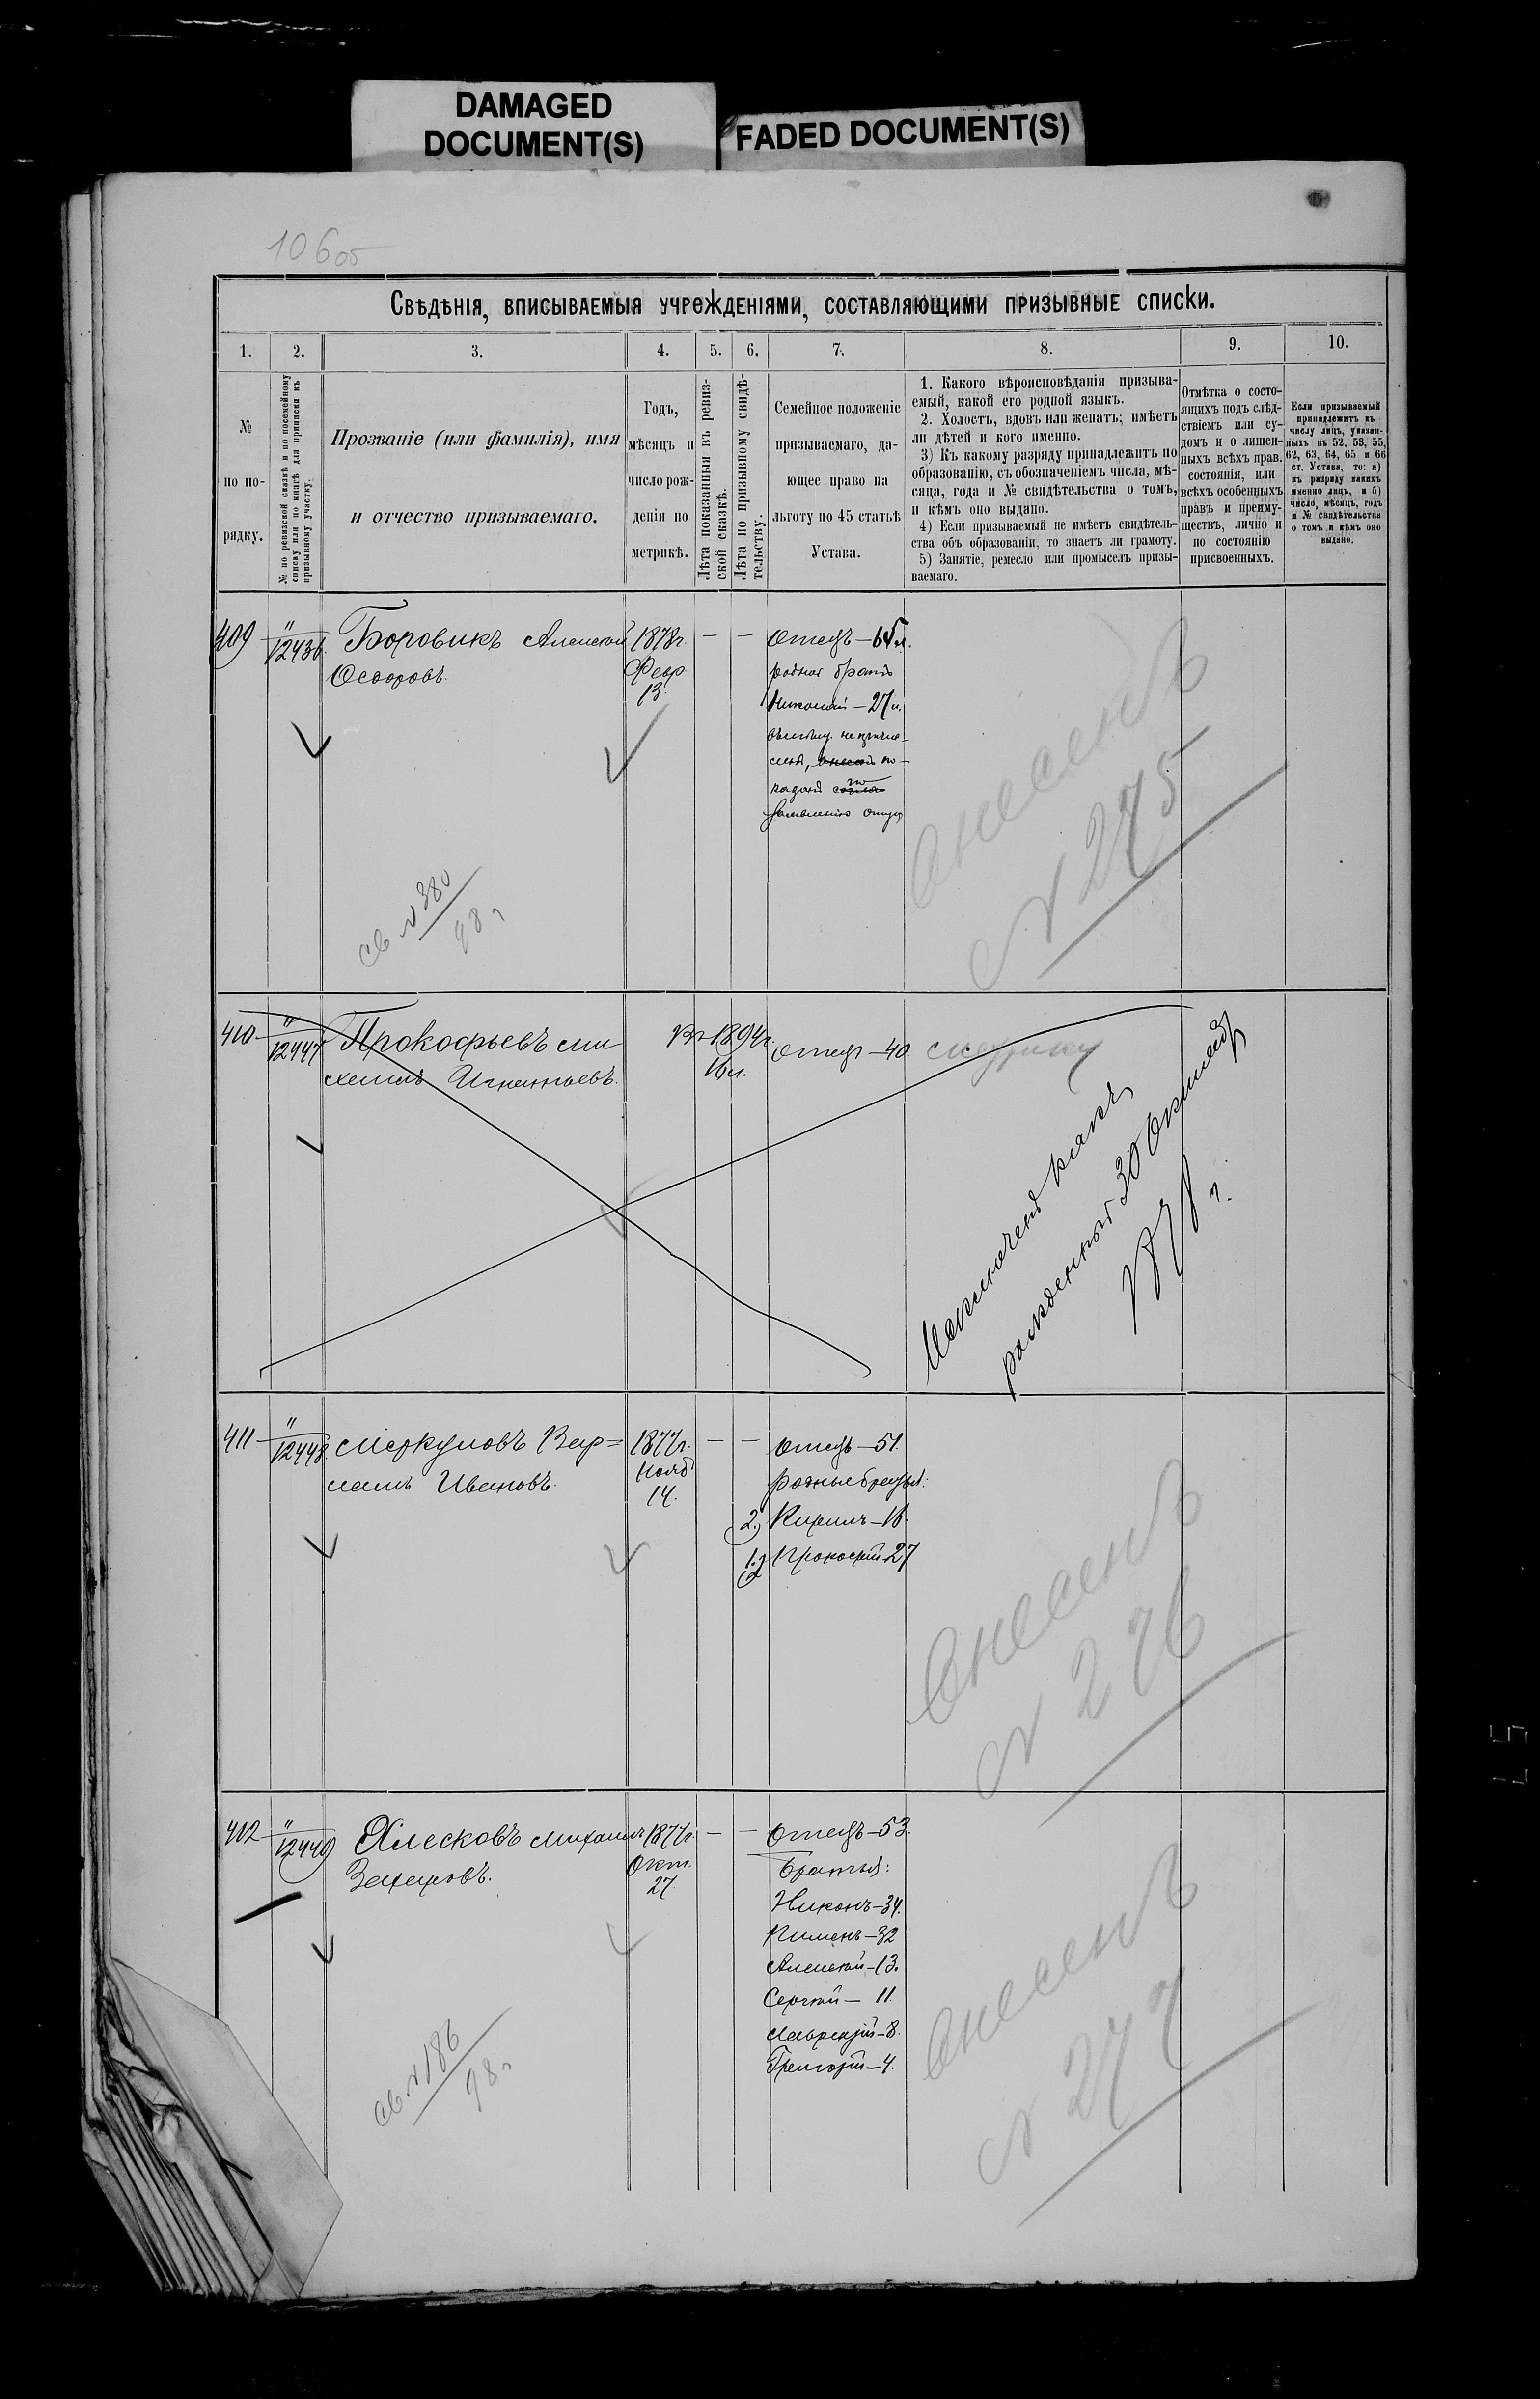 DAMAGED
DOCUMENT(S)
FADED DOCUMENT(S)
10605
Свѣдѣнія, вписываемыя учрежденіями, составляющими призывные списки.
1. 2. 3. 4. 5. 6. 7. 8. 9. 10.
№
по по-
рядку.
№ по ревизской сказкѣ и по посемейному
списку или по книгѣ для приписки къ
призывному участку.
Прозваніе (или фамилія), имя
и отчество призываемаго.
Годъ,
мѣсяцъ и
число рож-
денія по
метрикѣ.
Лѣта показанныя въ ревиз-
ской сказкѣ.
Лѣта по призывному свидѣ-
тельству.
Семейное положеніе
призываемаго, да-
ющее право на
льготу по 45 статьѣ
Устава.
1. Какого вѣроисповѣданія призыва-
емый, какой его родной языкъ.
2. Холостъ, вдовъ или женатъ; имѣетъ
ли дѣтей и кого именно.
3) Къ какому разряду принадлежитъ по
образованію, съ обозначеніемъ числа, мѣ-
сяца, года и № свидѣтельства о томъ,
и кѣмъ оно выдано.
4) Если призываемый не имѣетъ свидѣтель-
ства объ образованіи, то знаетъ ли грамоту.
5) Занятіе, ремесло или промыселъ призы-
ваемаго.
Отмѣтка о состо-
ящихъ подъ слѣд-
ствіемъ или су-
домъ и о лишен-
ныхъ всѣхъ прав.
состоянія, или
всѣхъ особенныхъ
правъ и преиму-
ществъ, лично и
по состоянію
присвоенныхъ.
Если призываемый
принадлежитъ къ
числу лицъ, указан-
ныхъ въ 52, 53, 55,
62, 63, 64, 65 и 66
ст. Устава, то: а)
къ разряду какихъ
именно лицъ, и б)
число, мѣсяцъ, годъ
и № свидѣтельства
о томъ и кѣмъ оно
выдано.
409 " 12436. Боровикъ Алексѣй 1878г. — — Отецъ — 65 л.
Ѳедоровъ. Февр родной братъ
13. Николай — 27 л.
показанъ по
заявленію отца
внесенъ
№ 275
св №380
98 г
410 " 12447 Прокофьевъ Ми- въ 1894г. отецъ — 40.
хаилъ Игнатьевъ. 16 л.
Исключенъ какъ
рожденный 30 Октября
411 " 12448. Меркуловъ Вар= 1877г. — — Отецъ — 51.
ламъ Ивановъ. Нояб родные братья:
14. 2.) Кирилъ — 16.
1.) Прокофій 27
внесенъ
№ 276
412 " 12449 Хлесковъ Михаилъ 1877г. — — Отецъ — 53.
Захаровъ. Окт. Братья:
27. Никонъ — 34.
Пименъ — 32
Алексѣй — 13.
Сергѣй — 11.
Лаврентій — 8.
Григорій — 4.
внесенъ
№ 277
св №186
98 г